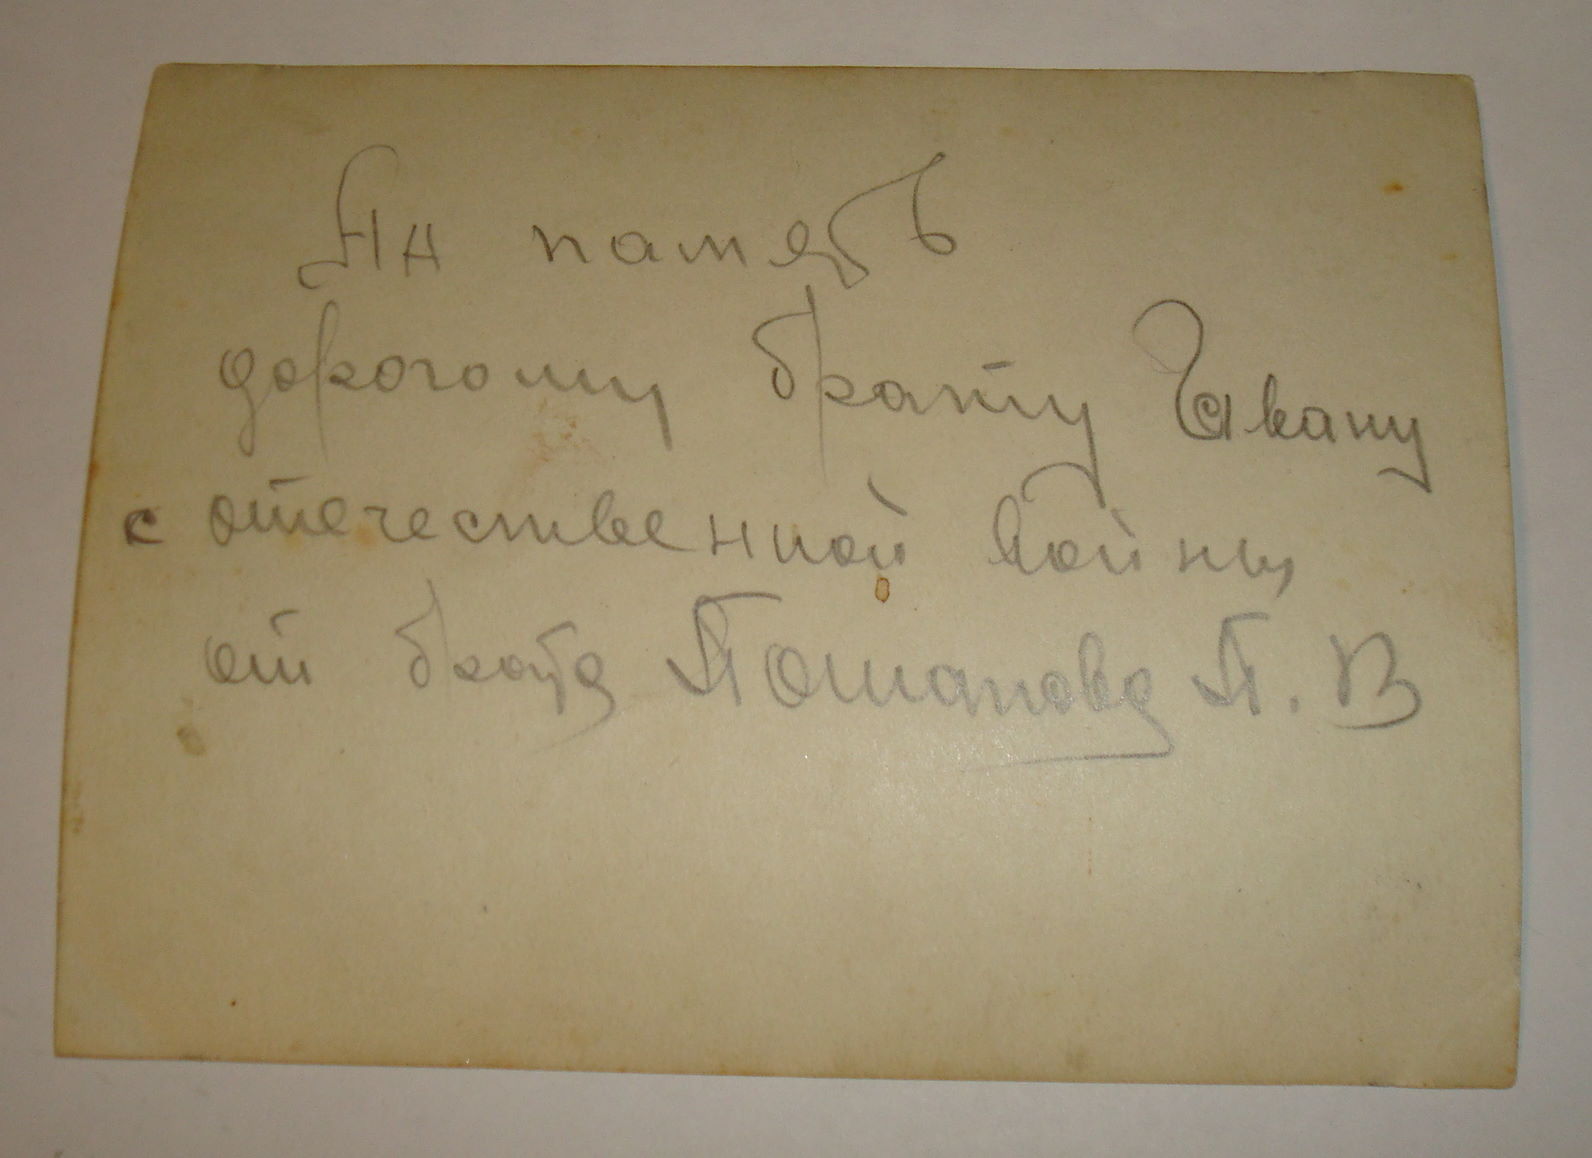 На память
дорогому брату Ивану
с отечественной войны
от брата Потапова П. В